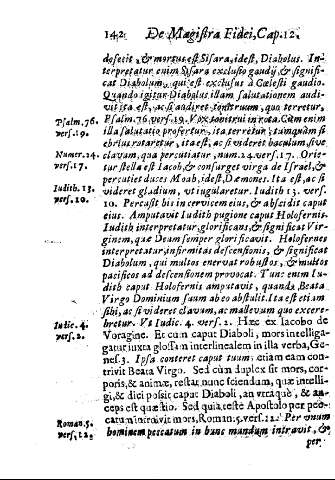 142 De Magistra Fidei, Cap. 12.
defecit, & mortuus est Sisara, idest, Diabolus. In-
terpretatur enim Sisara exclusio gaudij, & signifi-
cat Diabolum, qui est exclusus à Cœlesti gaudio.
Quando igitur Diabolus illam salutationem audi-
vit ita est, ac si audiret tonitruum, quo terretur,
Psalm. 76. Psalm. 76. vers. 19. Vox tonitrui in rota. Cum enim
vers. 19. illa salutatio profertur, ita terretur, tanquam si
ebrius rotaretur, ita est, ac si videret baculum sive
Numer. 24. clavam, qua percutiatur, num. 24. vers. 17. Orie-
vers. 17. tur stella est Iacob, & consurget virga de Israel, &
percutiet duces Moab, idest, Dæmones. Ita est, ac si
Iudith. 13. videret gladium, ut iugularetur. Iudith 13. vers.
vers. 10. 10. Percussit bis in cervicem eius, & abscidit caput
eius. Amputavit Iudith pugione caput Holofernis.
Iudith interpretatur, glorificans, & significat Vir-
ginem, quæ Deum semper glorificavit. Holofernes
interpretatur, infirmitas descensionis, & significat
Diabolum, qui multos enervat robustos, & multos
pacificos ad descensionem provocat. Tunc enim Iu-
dith caput Holofernis amputavit, quando Beata
Virgo Dominium suum ab eo abstulit. Ita est etiam
sibi, ac si videret clavum, ac malleum quo excere-
Iudic. 4. bretur. Vt Iudic. 4. vers. 2. Hæc ex Iacobo de
vers. 2. Voragine. Et cum caput Diaboli, mors intelliga-
gatur iuxta glossam interlinealem in illa verba, Ge-
nes. 3. Ipsa conteret caput tuum: etiam eam con-
trivit Beata Virgo. Sed cùm duplex sit mors, cor-
poris, & animæ, restat nunc sciendum, quæ intelli-
gi, & dici possit caput Diaboli, an utraque, & an-
ceps est quæstio. Sed quia teste Apostolo per pec-
Roman. 5. catum intravit mors, Roman. 5. vers. 12. Per unum
vers. 12. hominem peccatum in hunc mundum intravit, &
per